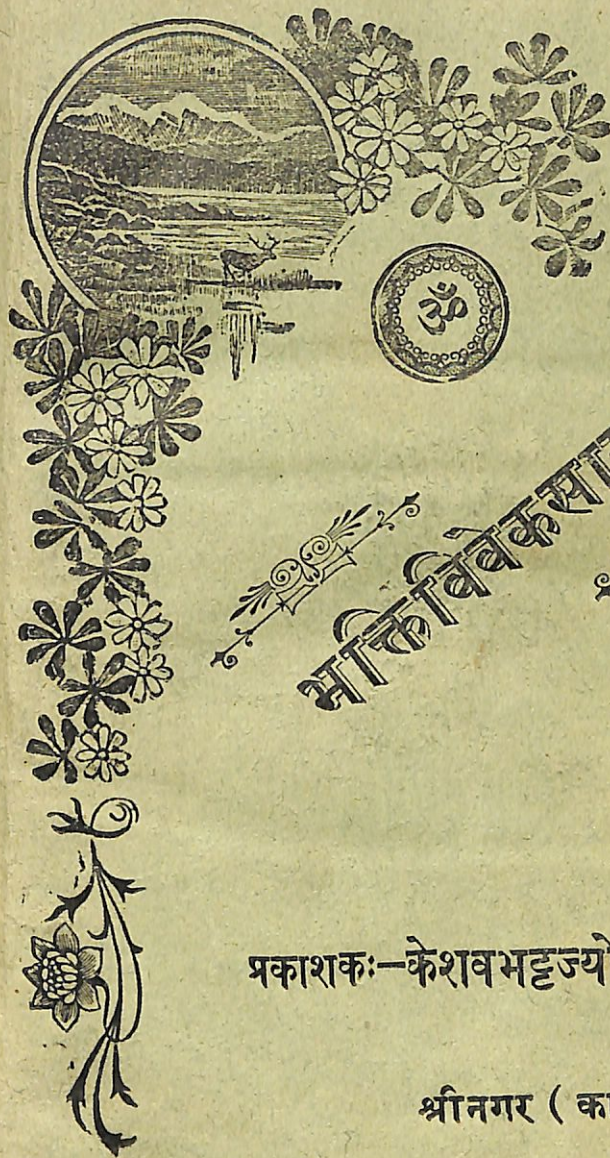 ॐ
भक्तिविवेकसा
प्रकाशकः-केशवभट्टज्यो
श्रीनगर ( का